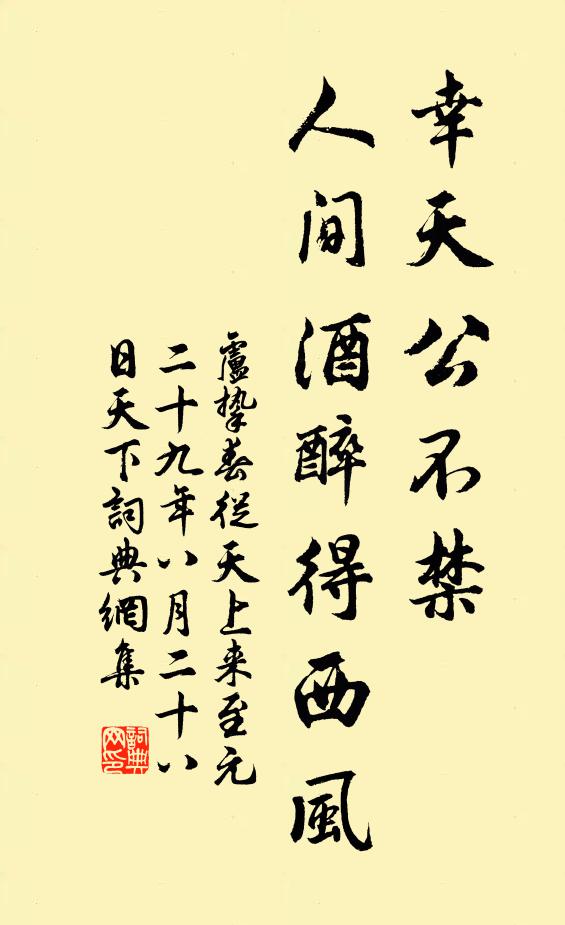 幸天公不禁
人间酒醉得西風
盧摯春從天上来至元
二十九年八月二十八
日天下詞典網集
詞典
网印